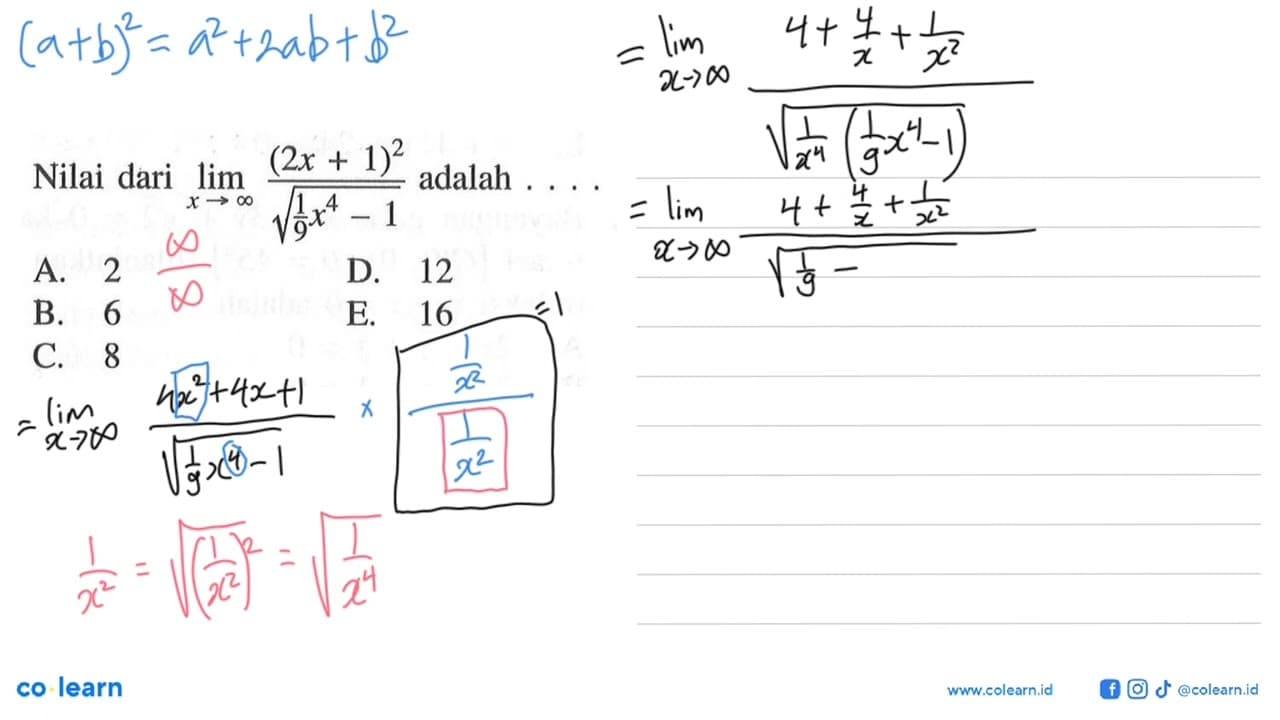 (a+b)² = a² + 2ab + b²
Nilai dari lim x→∞ (2x + 1)² / √(1/9 x⁴ − 1) adalah . . . .
∞/∞
A. 2 D. 12
B. 6 E. 16
C. 8
= lim x→∞ (4x² + 4x + 1) / √(1/9 x⁴ − 1) × (1/x²) / (1/x²) = 1
1/x² = √(1/x²)² = √(1/x⁴)
= lim x→∞ (4 + 4/x + 1/x²) / √(1/x⁴ (1/9 x⁴ − 1))
= lim x→∞ (4 + 4/x + 1/x²) / √(1/9 −
co learn
www.colearn.id @colearn.id